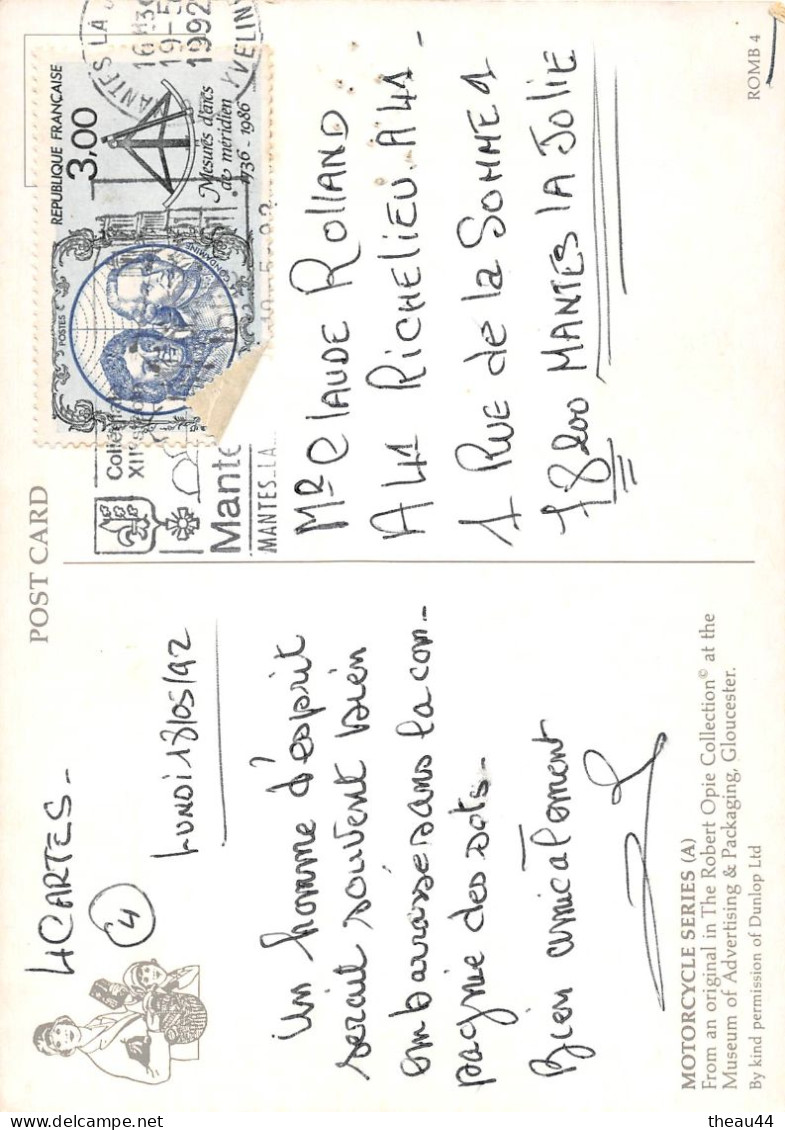 POST CARD
4 CARTES -
4
LUNDI 18/05/92
Un homme d'esprit
serait souvent bien
embarrassé sans la com-
pagnie des sots -
Bien amicalement
MOTORCYCLE SERIES (A)
From an original in The Robert Opie Collection© at the
Museum of Advertising & Packaging, Gloucester.
By kind permission of Dunlop Ltd
MANTES LA J
16H30
19-5
1992
YVELIN
REPUBLIQUE FRANÇAISE
3,00
Mesures d'arcs
de méridien
1736-1986
POSTES
Collégiale
XII
Mante
MANTES-LA
19-5-92
Mr Claude ROLLAND
A41 RICHELIEU A41 -
1 RUE de la SOMME 1
78200 MANTES LA JOLIE
ROMB 4
theau44